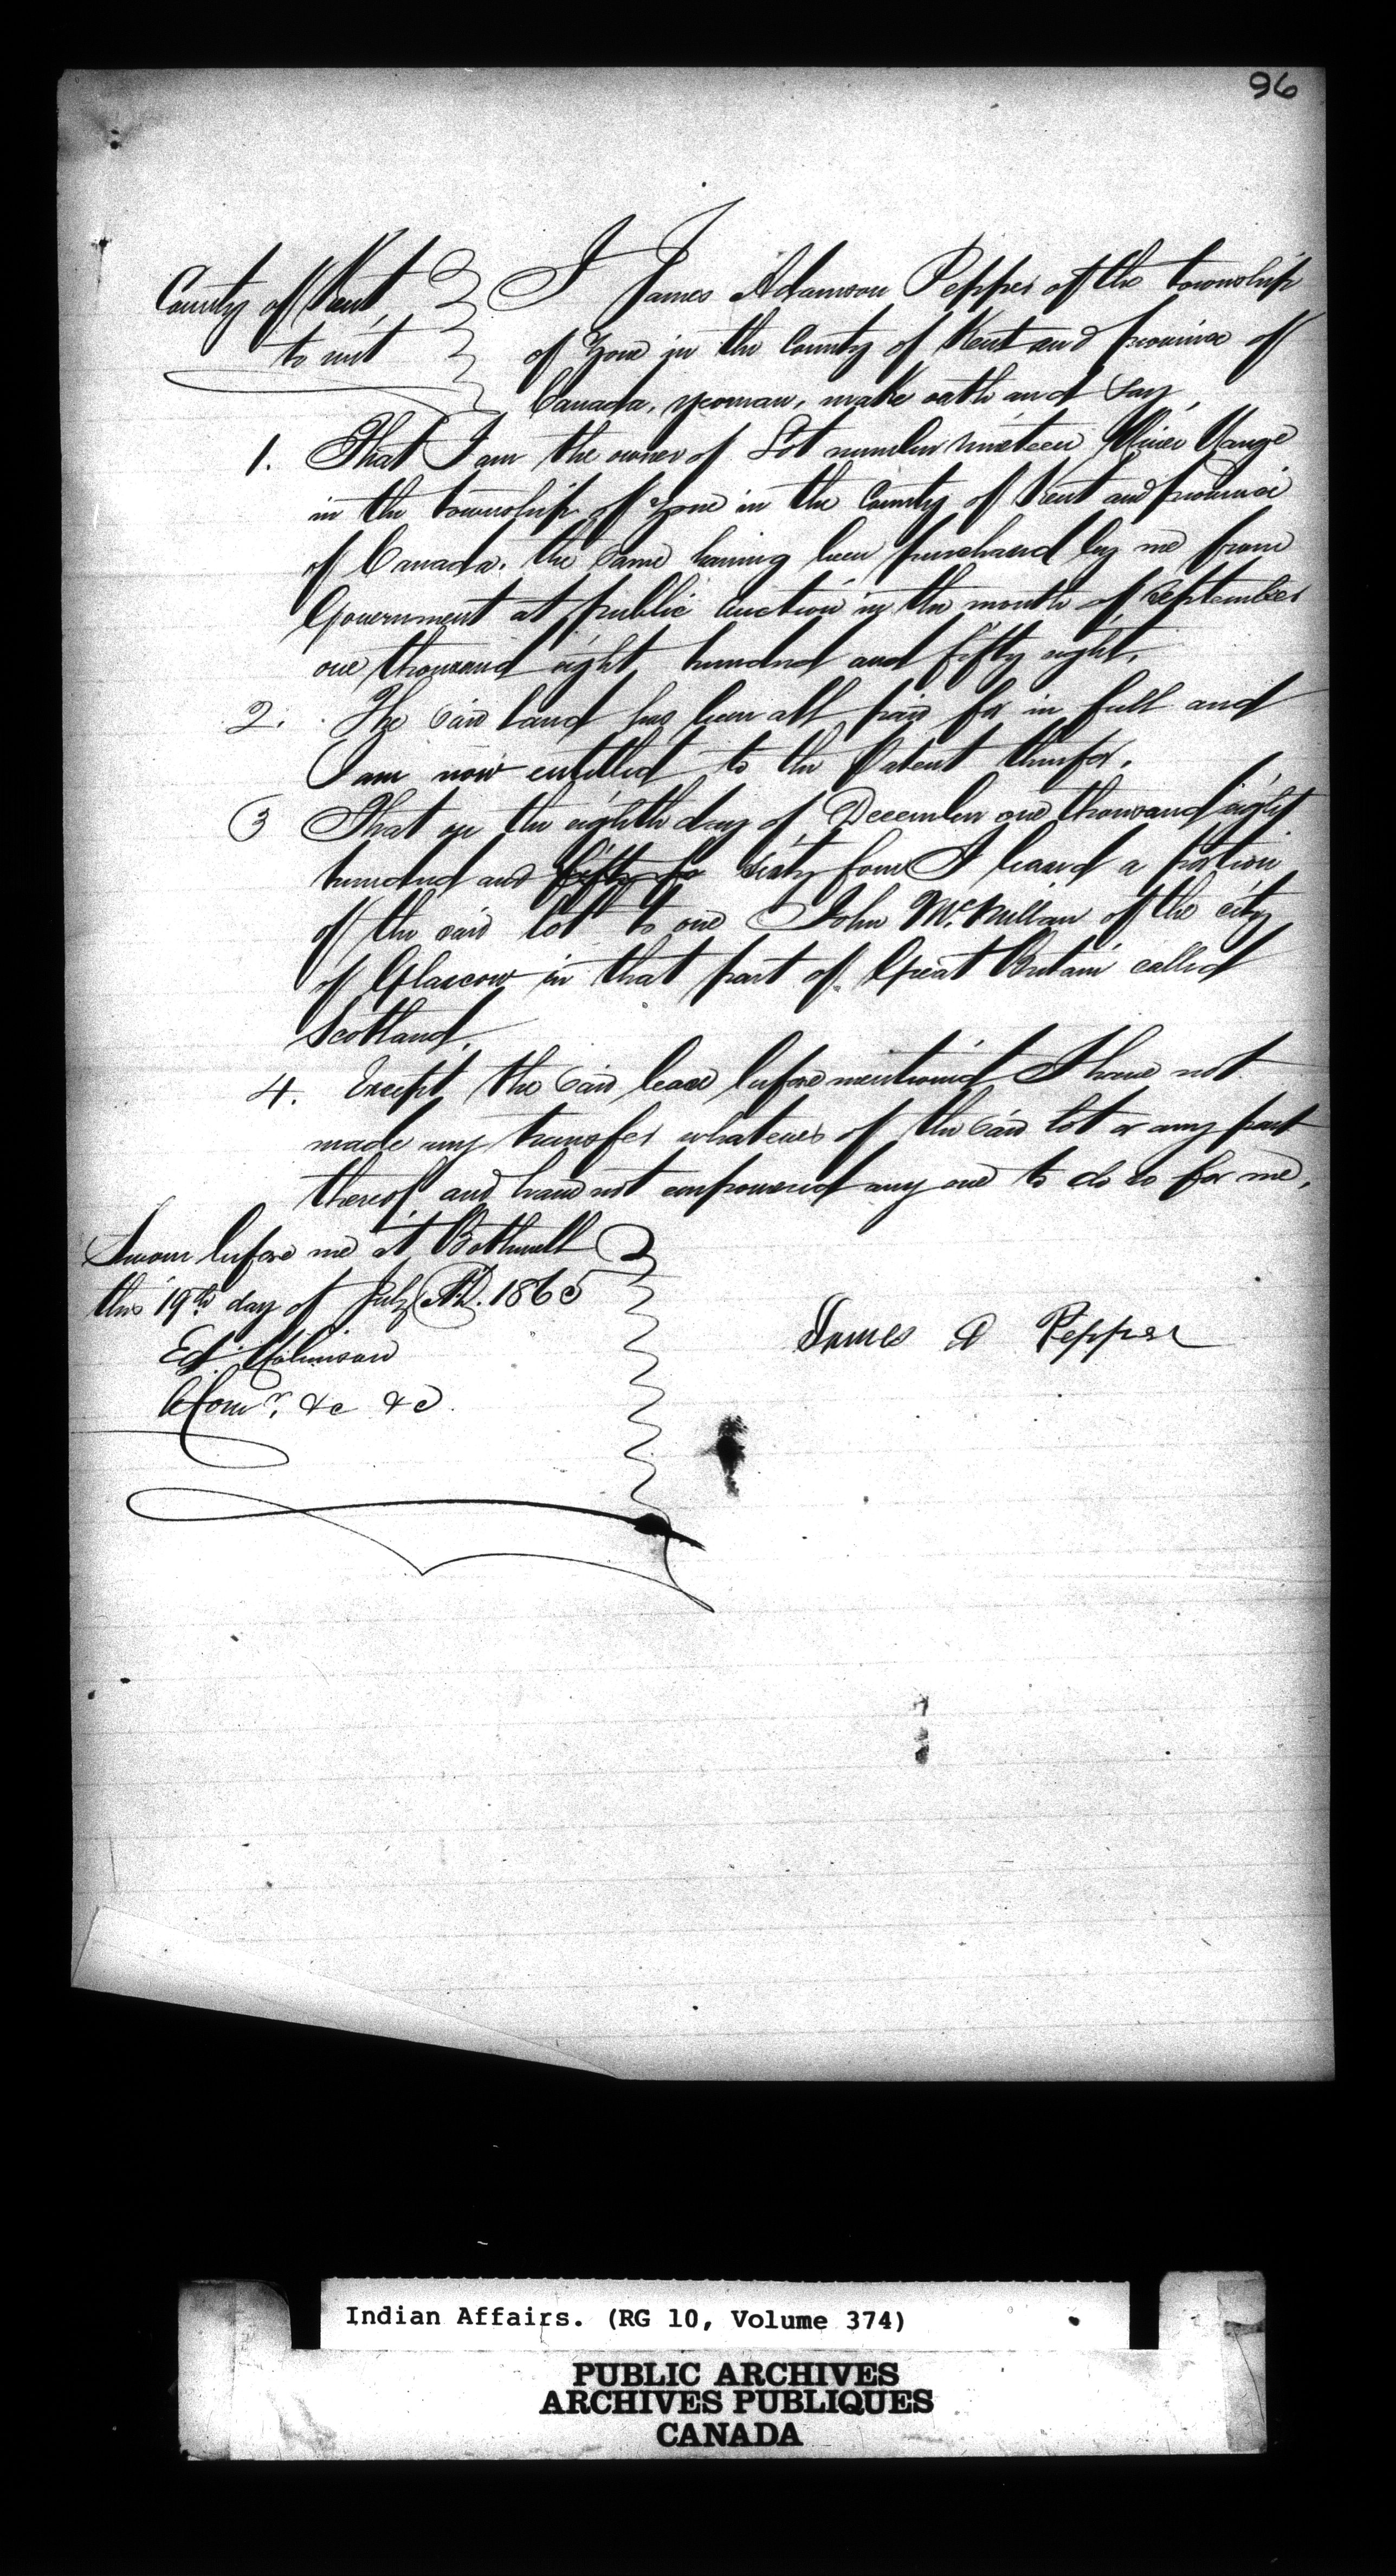 96
County of Kent, I James Adamson Pepper of the township
to wit of Zone in the County of Kent and province of
Canada, yeoman, make oath and say,
1. That I am the owner of Lot number nineteen River Range
in the township of Zone in the County of Kent and province
of Canada. the same having been purchased by me from
Government at public auction in the month of September
one thousand eight hundred and fifty eight.
2. The said land has been all paid for in full and
I am now entitled to the Patent therefor.
3 That on the eighth day of December one thousand eight
hundred and fifty fo sixty four I leased a portion
of the said lot to one John McMillan of the city
of Glascow in that part of Great Britain called
Scotland.
4. Except the said lease before mentioned I have not
made any transfer whatever of the said lot or any part
thereof and have not empowered any one to do so for me.
Sworn before me at Bothwell
this 19th day of July A.D. 1865
James A Pepper
Ed. Robinson
Comr. &c &c.
Indian Affairs. (RG 10, Volume 374)
PUBLIC ARCHIVES
ARCHIVES PUBLIQUES
CANADA